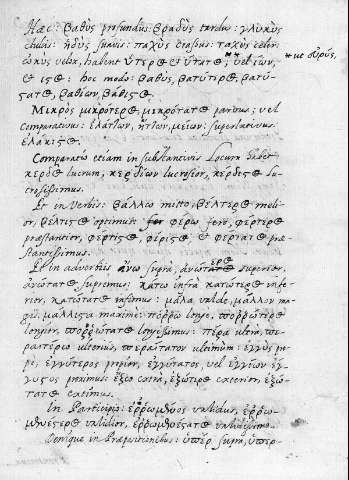 Hæc: βαθὺς profundus: βραδὺς tardus: γλυκὺς
dulcis: ἡδὺς suavis: παχὺς crassus: ταχὺς celer
ὠκὺς velox, habent ύτερος & ύτατος; vel ίων, * ut εὐρύς,
& ισος: hoc modo: βαθὺς, βαθύτερος, βαθύ-
τατος, βαθίων, βάθισος.
Μικρὸς μικρότερος, μικρότατος parvus: vel
comparativus: ἐλάττων, ἥττων, μείων: superlativus
ἐλάχιστος.
Comparatio etiam in substantivis Locum habet
κέρδος lucrum, κερδίων lucrosior, κέρδιστος lu-
crosissimus.
Et in Verbis: βάλλω mitto, βέλτερος melior,
βέλτιστος optimus: φέρω fero, φέρτερος
præstantior, φέρτιστος, φέριστος, & φέρτατος præ-
stantissimus.
Et in adverbiis ἄνω supra, ἀνώτερος superior,
ἀνώτατος supremus: κάτω infra κατώτερος infe-
rior, κατώτατος infimus: μάλα valde, μᾶλλον ma-
gis, μάλιστα maxime: πόῤῥω longe, ποῤῥώτερος
longior, ποῤῥώτατος longissimus: πέρα ultra, πε-
ραιτέρω ulterius, περαίτατον ultimum: ἐγγὺς pro-
pe, ἐγγύτερος propior, ἐγγύτατος, vel ἐγγίων ἔγ-
γιστος proximus: ἔξω extra, ἐξώτερος exterior, ἐξώ-
τατος extimus.
In Participio: ἐῤῥωμένος validus, ἐῤῥω-
μενέστερος validior, ἐῤῥωμενέστατος validissimus.
Denique in Præpositionibus: ὑπὲρ supra, ὑπέρ-